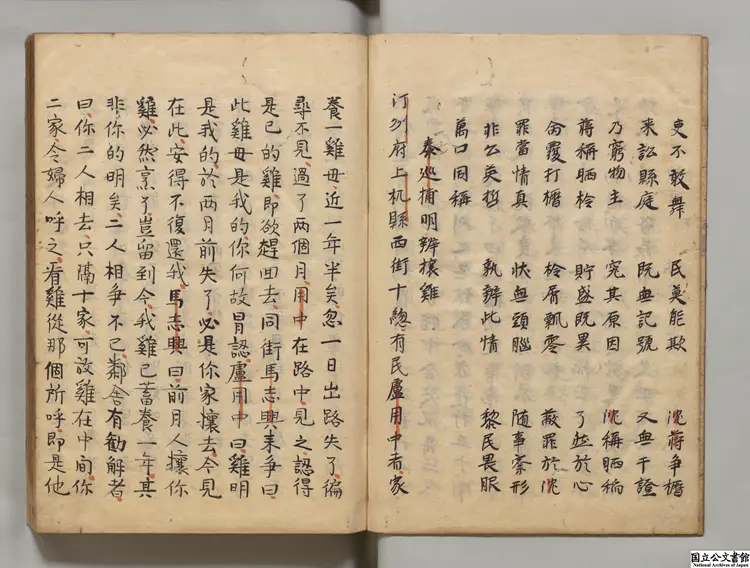 吏不敢舞　民莫能欺　沈蔣争櫓
来訟縣庭　既無記號　又無干證
乃窮物主　究其原因　沈稱晒稲
蔣稱晒柃　貯盛既異　了然於心
侖覆打櫓　柃屑飄零　蔽罪於沈
罪當情真　状無頭腦　隨事索形
非公英哲　孰辨此情　黎民畏服
萬口同稱
秦巡捕明辨攘雞
汀州府上杭縣西街十總有民盧用中者家
養一雞母近一年半矣忽一日出路失了徧
尋不見過了兩個月用中在路中見之認得
是己的雞即欲趕回去同街馬志興来争曰
此雞母是我的你何故冒認盧用中曰雞明
是我的於两月前失了必是你家攘去今見
在此安得不復還我馬志興曰前月人攘你
雞必然烹了豈留到今我雞已蓄養一年其
非你的明矣二人相争不已鄰舍有勸解者
曰你二人相去只隔十家可放雞在中間你
二家令婦人呼之看雞從那個所呼即是他
国立公文書館
National Archives of Japan